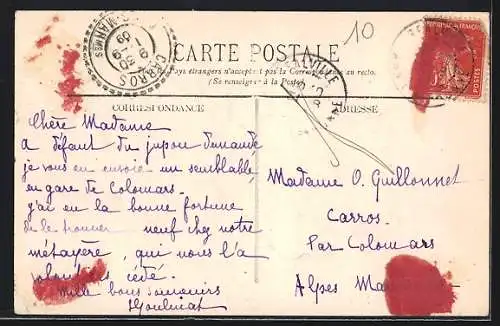 10
CARTE POSTALE
Pays étrangers n'acceptent pas la Correspondance au recto.
(Se renseigner à la Poste)
CORRESPONDANCE
ADRESSE
CARROS
POSTES
Chère Madame
a défaut du jupon demandé
je vous en envoie un semblable
en gare de Colomars.
j'ai eu la bonne fortune
de le trouver neuf chez notre
métayère, qui nous l'a
cédé.
Mille bons souvenirs
Madame O. Guillonnet
Carros.
Par Colomars
Alpes